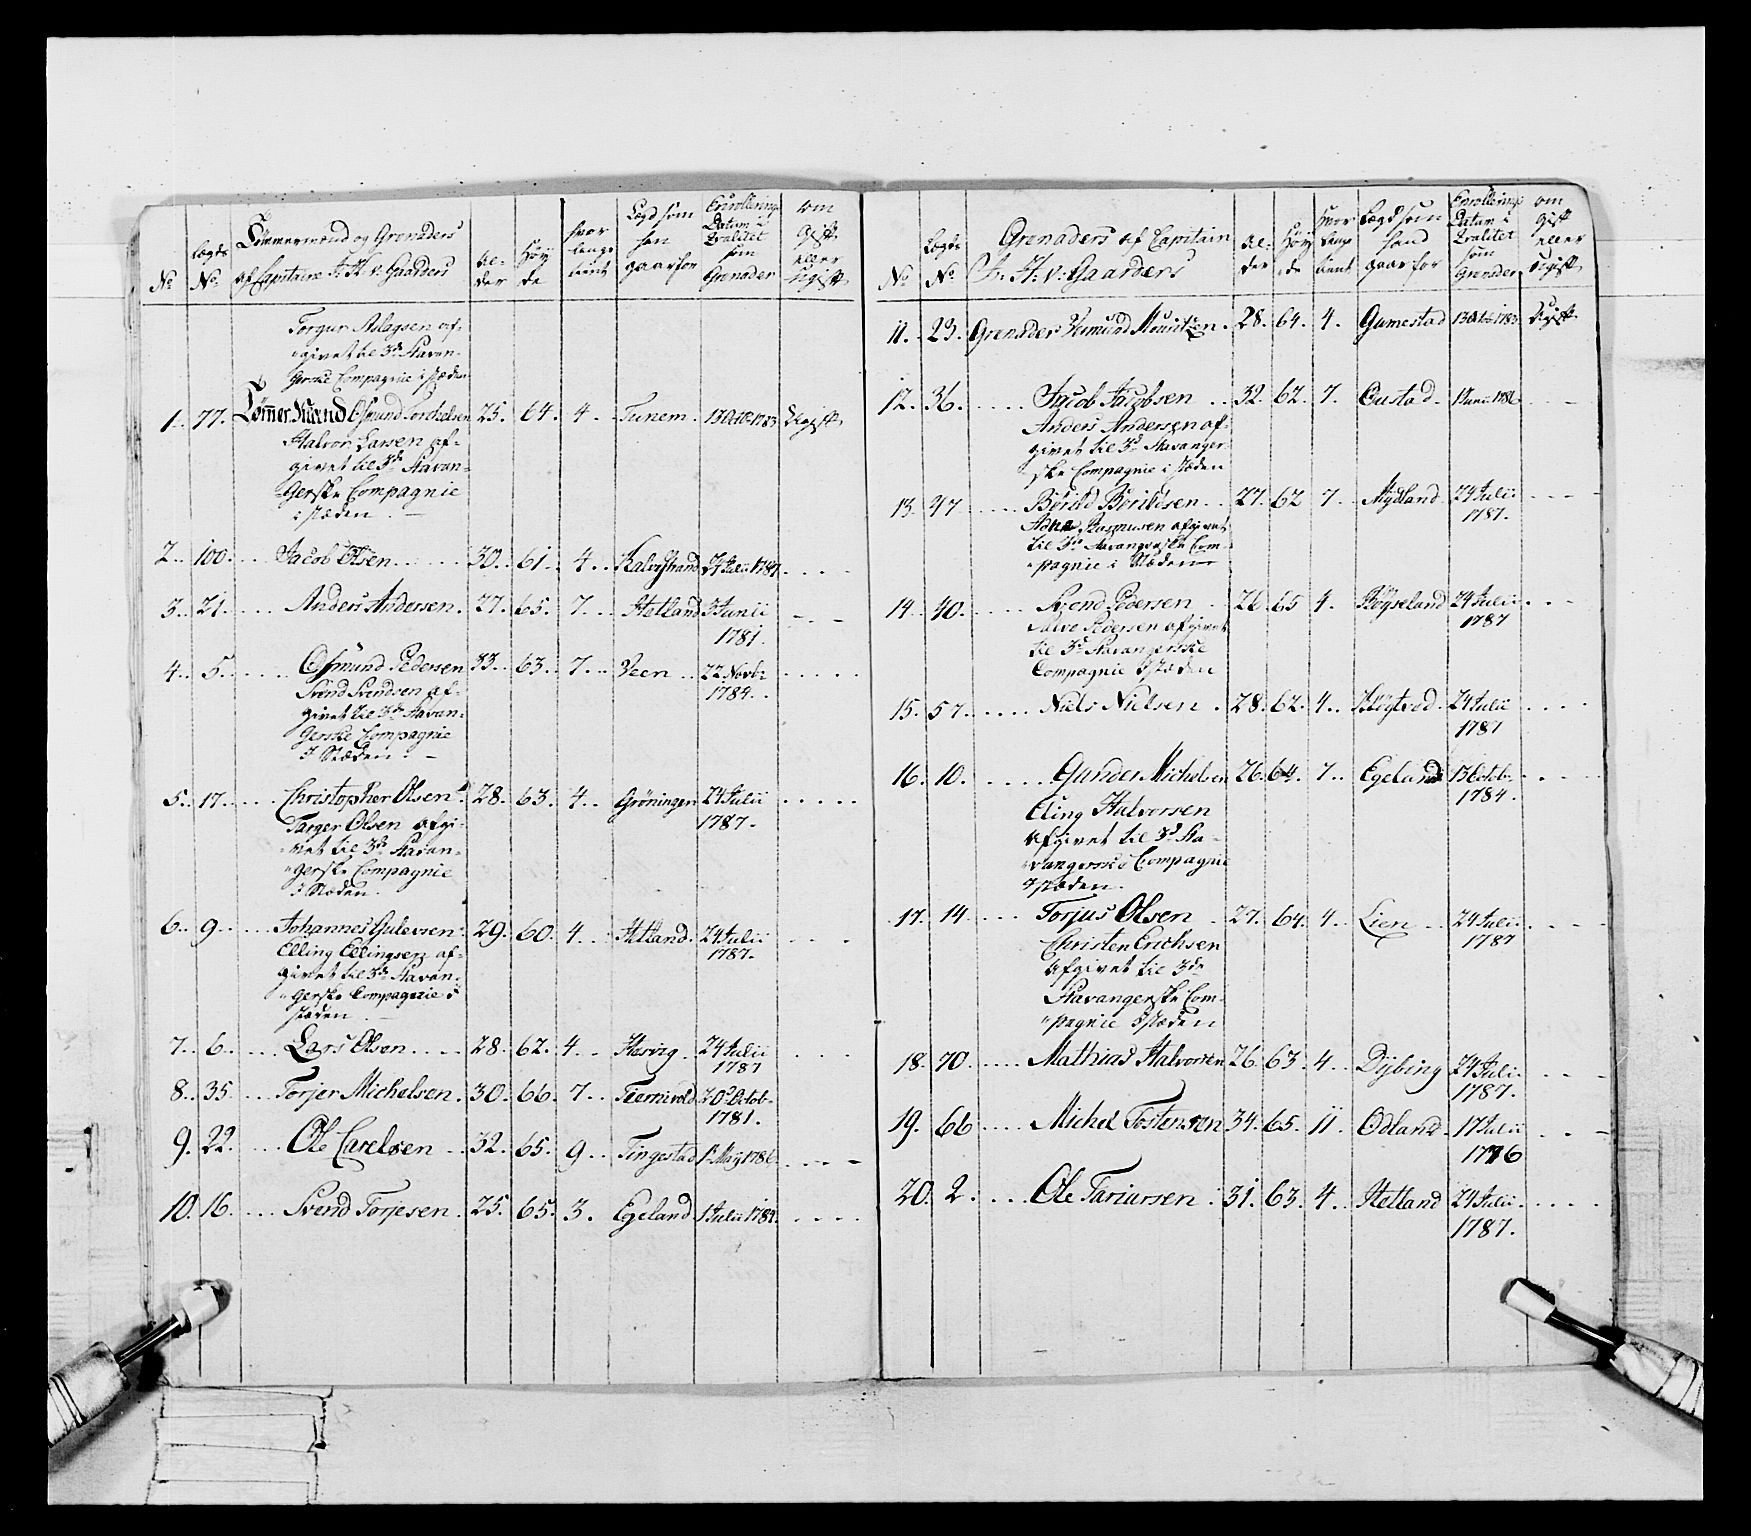 No
Lægds No.
Tømmermænd og Grenaders
af Capitaine F: H v: Gaarders
Al-
der
Høy
de
hvor
længe
tient
Lægd som
han
gaar for
Enrollerings
Datum i
Qvalitet
som
Grenader
om
Gift
eller
Ugift
Torgur Aslagsen af-
givet til 3de Stavan-
gerske Compagnie i stæden
1. 77. Tømmer Mænd Osmund Torchelsen 25. 64. 4. Tunem. 13 Octb: 1783 Ugift
Halvor Larsen af-
givet til 3de Stavan-
Gerske Compagnie
i stæden. —
2. 100. Jacob Olsen 30. 61. 4. 24 Julii 1787
3. 21. Anders Andersen. 27. 65. 7. Hetland 3 Junii
1781.
4. 5. Osmund Pedersen 33. 63. 7. Veen 22 Novbr
1784.
Svend Svendsen af-
givet til 3de Stavan-
Gerske Compagnie
I Stæden. —
5. 17. Christopher Olsen 28. 63. 4. Grøningen 24 Julii
1787.
Targer Olsen afgi-
vet til 3de Stavan-
gerske Compagnie
I Stæden.
6. 9. Johannes Gulevsen 29. 60. 4. Hetland. 24 Julii
1787.
Elling Ellingsen af-
givet til 3de Stavan-
Gerske Compagnie i
stæden
7. 6. Lars Olsen 28. 62. 4. 24 Julii
1787
8. 35. Torjer Michelsen. 30. 66. 7. 20de Octob.
1781.
9. 22. Ole Carelsen 32. 65. 9. Tingestad 1 Maij 1786
10. 16. Svend Torjesen. 25. 65. 3. Egeland 1 Julii 1784
No
Lægds
No.
Grenaders af Capitain
Fr. H: v: Gaarders
Al-
der
Høy
de
hvor
længe
tient
Lægd som
hand
gaar for
Enrollerings
Datum i
Qvalitet
som
Grenader
om
Gift
eller
Ugift
11. 23. Grenader 28. 64. 4. Gumestad 13 Octb: 1783 Ugift
12. 36. Jacob Jacobsen 32. 62. 7. Oustad.
Anders Andersen af-
givet til 3de Stavanger-
ske Compagnie i stæden
13. 47. Børild Børildsen 27. 62 7. Mydland 24 Julii
1787.
Adne Rasmusen afgivet
til 3de Stavangerske Com-
pagnie i Stæden
14. 40. Svend Pedersen 26. 65 4. Røyseland 24 Julii
1787
Salve Pedersen afgivet
til 3de Stavangerske
Compagnie I stæden
15. 57. Niels Nielsen. 28. 62. 4. 24 Julii
1787
16. 10. Gunder Michelsen 26. 64. 7. Egeland 13 Octob.
1784.
Eling Halvorsen
Afgivet til 3de Sta-
vangerske Compagnie
I stæden.
17. 14 Torjus Olsen 27. 64. 4. Lien 24 Julii
1787
Christen Erichsen
Afgivet til 3de
Stavangerske Com-
pagnie I stæden
18. 70. Mathias Halvorsen 26. 63. 4 Dybing 24 Julii
1787.
19. 66 Michel Tostensen 34. 65. 11 Odland 17 Julii
1776
20. 2. Ole Tariursen 31. 63. 4. Hetland 24 Julii
1787.